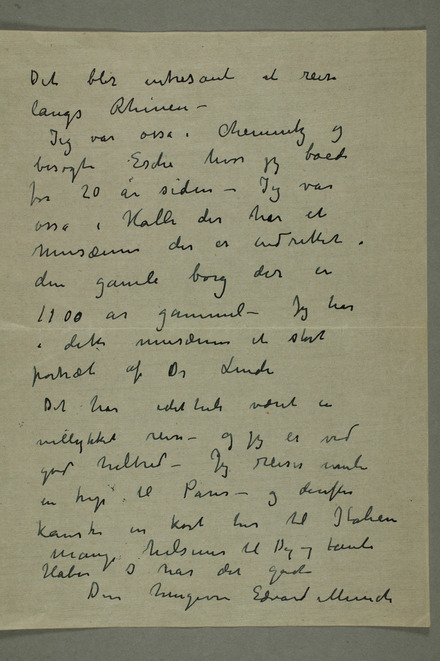 Det blir intresant at reise
langs Rhinen –
Jeg var ossa i Chemnitz og
besøgte Esche hvor jeg boede
for 20 år siden – Jeg var
ossa i Halle der har et
musæum der er indrettet i
den gamle borg der er
1100 år gammel – Jeg har
i dette musæum et stort
portræt af Dr Linde
Det har idethele været en
vellykket reise – og jeg er ved
god helbred – Jeg reiser
en trip til Paris – og derefter
kanske en kort tur til Italien
Mange hilsener til Dig og tante
Haber I har det godt
Din hengivne Edvard Munch